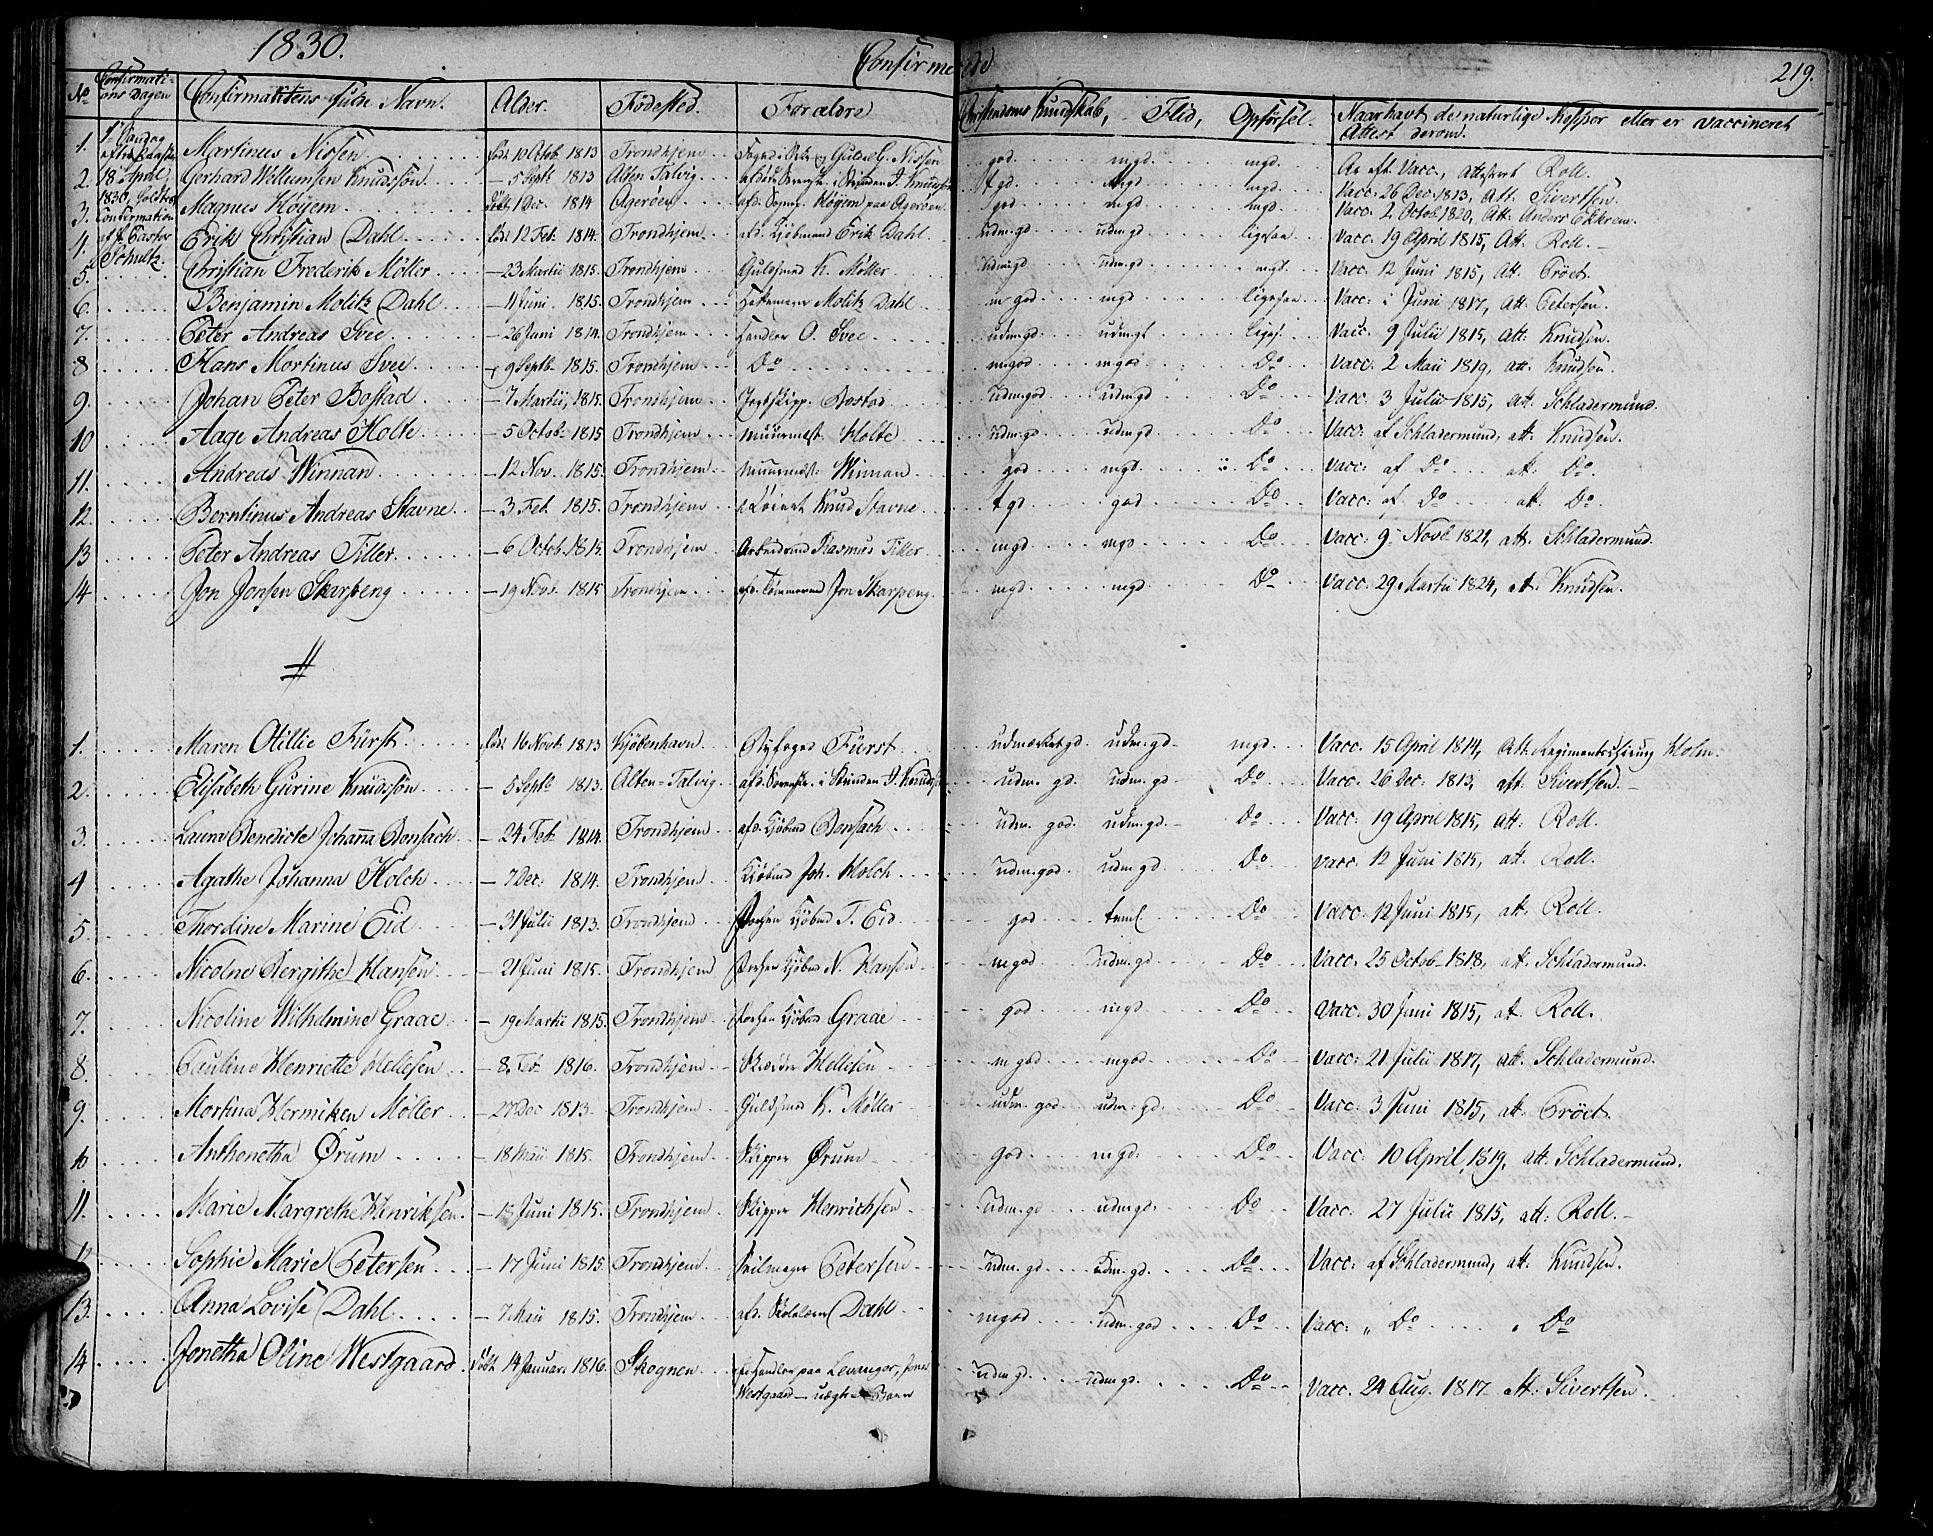 1830.
Confirmerede
219.
No
Confirmations Dagen
Confirmantens fulde Navn.
Alder.
Fødested.
Forældre
Christendoms Kundskab,
Flid,
Opførsel.
Naar havt de naturlige Kopper eller er vaccineret
Attest derom.
18 April 1830, holdtes Confirmation af Hr Pastor Schultz
1. Martinus Nissen født 10 Octob. 1813 Trondhjem G. Nissen god mgd. mgd. Vacc., attesteret Roll.
2. Gerhard Willumsen Knudsön — 5 Septb 1813 Alten Talvig J. Knudsön tgd mgd mgd. Vacc: 26 Dec: 1813, Att. Sivertsen.
3. Magnus Höyem født 1 Dec. 1814 Agerøen Höyem paa Agerøen god mgd mgd. Vacc. 2 Octob 1820, Att. Anders Ekkrem.
4. Erik Christian Dahl født 12 Feb. 1814. Trondhjem afd. Kjøbmand Erik Dahl udm:gd udm:gd ligesaa Vacc: 19 April 1815, Att. Roll.
5. Christian Frederik Möller — 23 Martii 1815. Trondhjem Guldsmed K. Möller udm:gd udm:gd mgd. Vacc. 12 Juni 1815, Att. Bröet.
6. Benjamin Moltz Dahl — 11 Juni 1815. Trondhjem Moltz Dahl m god mgd ligesaa Vacc: i Juni 1817, Att: Petersen.
7. Peter Andreas Svee — 26 Juni 1814. Trondhjem Handler O. Svee udm:gd udm:gd liges. Vacc. 9 Julii 1815, Att: Knudsen.
8 Hans Mortinus Svee — 9 Septb. 1815. Trondhjem Do mgod mgod Do Vacc. 2 Maii 1819, att. Knudsen.
9. Johan Peter Bostad — 7 Martii, 1815. Trondhjem Jegtskipp. Bostad udm:god udm:gd Do Vacc: 3 Julii 1815, att. Schladermund.
10 Aage Andreas Holte — 5 Octob. 1815 Trondhjem Muurmest. Holte udm:gd udm:gd Do Vacc: af Schladermund, att. Knudsen.
11. Andreas Winnan — 12 Nov. 1815. Trondhjem Muurmest: Winnan god mgd Do Vacc: af Do att. Do.
12. Berntinus Andreas Stavne — 3 Feb. 1815. Trondhjem Knud Stavne tgd god Do Vacc: af Do att. Do.
13 Peter Andreas Tiller — 6 Octob. 1815. Trondhjem Arbeidsmd Rasmus Tiller mgd mgd Do Vacc: 9 Novb 1821, att. Schladermund.
14 Jon Jonsen Skarpeng — 19 Novb. 1815 Trondhjem afd. Tømmermd Jon Skarpeng mgd mgd Do Vacc: 29 Martii 1824, att. Knudsen.
1. Maren Otillie Fürst født 16 Novb. 1813 Kjöbenhavn Byfoged Fürst udmærket gd. udm:gd. mgd. Vacc. 15 April 1814, Att. Regimentschirurg Holm.
2. Elisabeth Gurine Knudsön — 5 Septb 1813. Alten-Talvig J. Knudsön udm: gd. udm:gd Do Vacc: 26 Dec: 1813, att. Sivertsen.
3. Laura Benedicte Johanna Bonsach — 24 Feb. 1814. Trondhjem afd. Kjöbmd Bonsach udm. god. udm:gd. Do Vacc: 19 April 1815, att. Roll.
4 Agathe Johanna Holch — 7 Dec: 1814. Trondhjem Kjöbmd Joh. Holch udm:god udm:gd Do Vacc. 12 Juni 1815, att. Roll.
5 Thordine Marine Eid — 31 Julii 1813. Trondhjem Kjöbmd T. Eid god teml Do Vacc: 12 Juni 1815, att. Roll.
6. Nicolne Bergithe Hansen — 21 Juni 1815. Trondhjem Kjöbmd N. Hansen mgod udm:gd Do Vacc: 25 Octob. 1818, att. Schladermund.
7. Nicoline Wilhelmine Graae — 19 Martii 1815. Trondhjem Kjöbmd Graae god mgd Do Vacc: 30 Juni 1815, att. Roll.
8. Pauline Henriette Hellesen — 8 Feb. 1816. Trondhjem Skræder Hellesen m god mgod Do Vacc: 21 Julii 1817, att. Schladermund.
9. Mortina Hermiken Møller — 27 Dec 1813. Trondhjem Guldsmed K. Møller udm:god udm:gd. Do Vacc: 3 Juni 1815, att. Bröet.
10 Anthonetha Ørum — 18 Maii 1815. Trondhjem Skipper Ørum god mgd. Do Vacc: 10 April, 1819, att. Schladermund.
11. Marie Margrethe Henriksen. — 13 Juni 1815. Trondhjem Skipper Henrichsen udm:gd udm:gd. Do Vacc: 27 Julii 1815, att: Roll.
12 Sophie Marie Petersen — 17 Juni 1815 Trondhjem Seilmager Petersen udm:gd udm:gd. Do Vacc: af Schladermund, att. Knudsen.
13. Anna Lovise Dahl — 7 Maii 1815. Trondhjem afd. Skolelærer Dahl mgod udm:god Do Vacc: „ Do „ Do
14 Jonetha Oline Westgaard født 14 Januar. 1816. Skognen paa Levanger, Jonas udm:gd udm:gd. Do Vacc. 24 Aug. 1817 att: Sivertsen.
Westgaard — uægte Barn